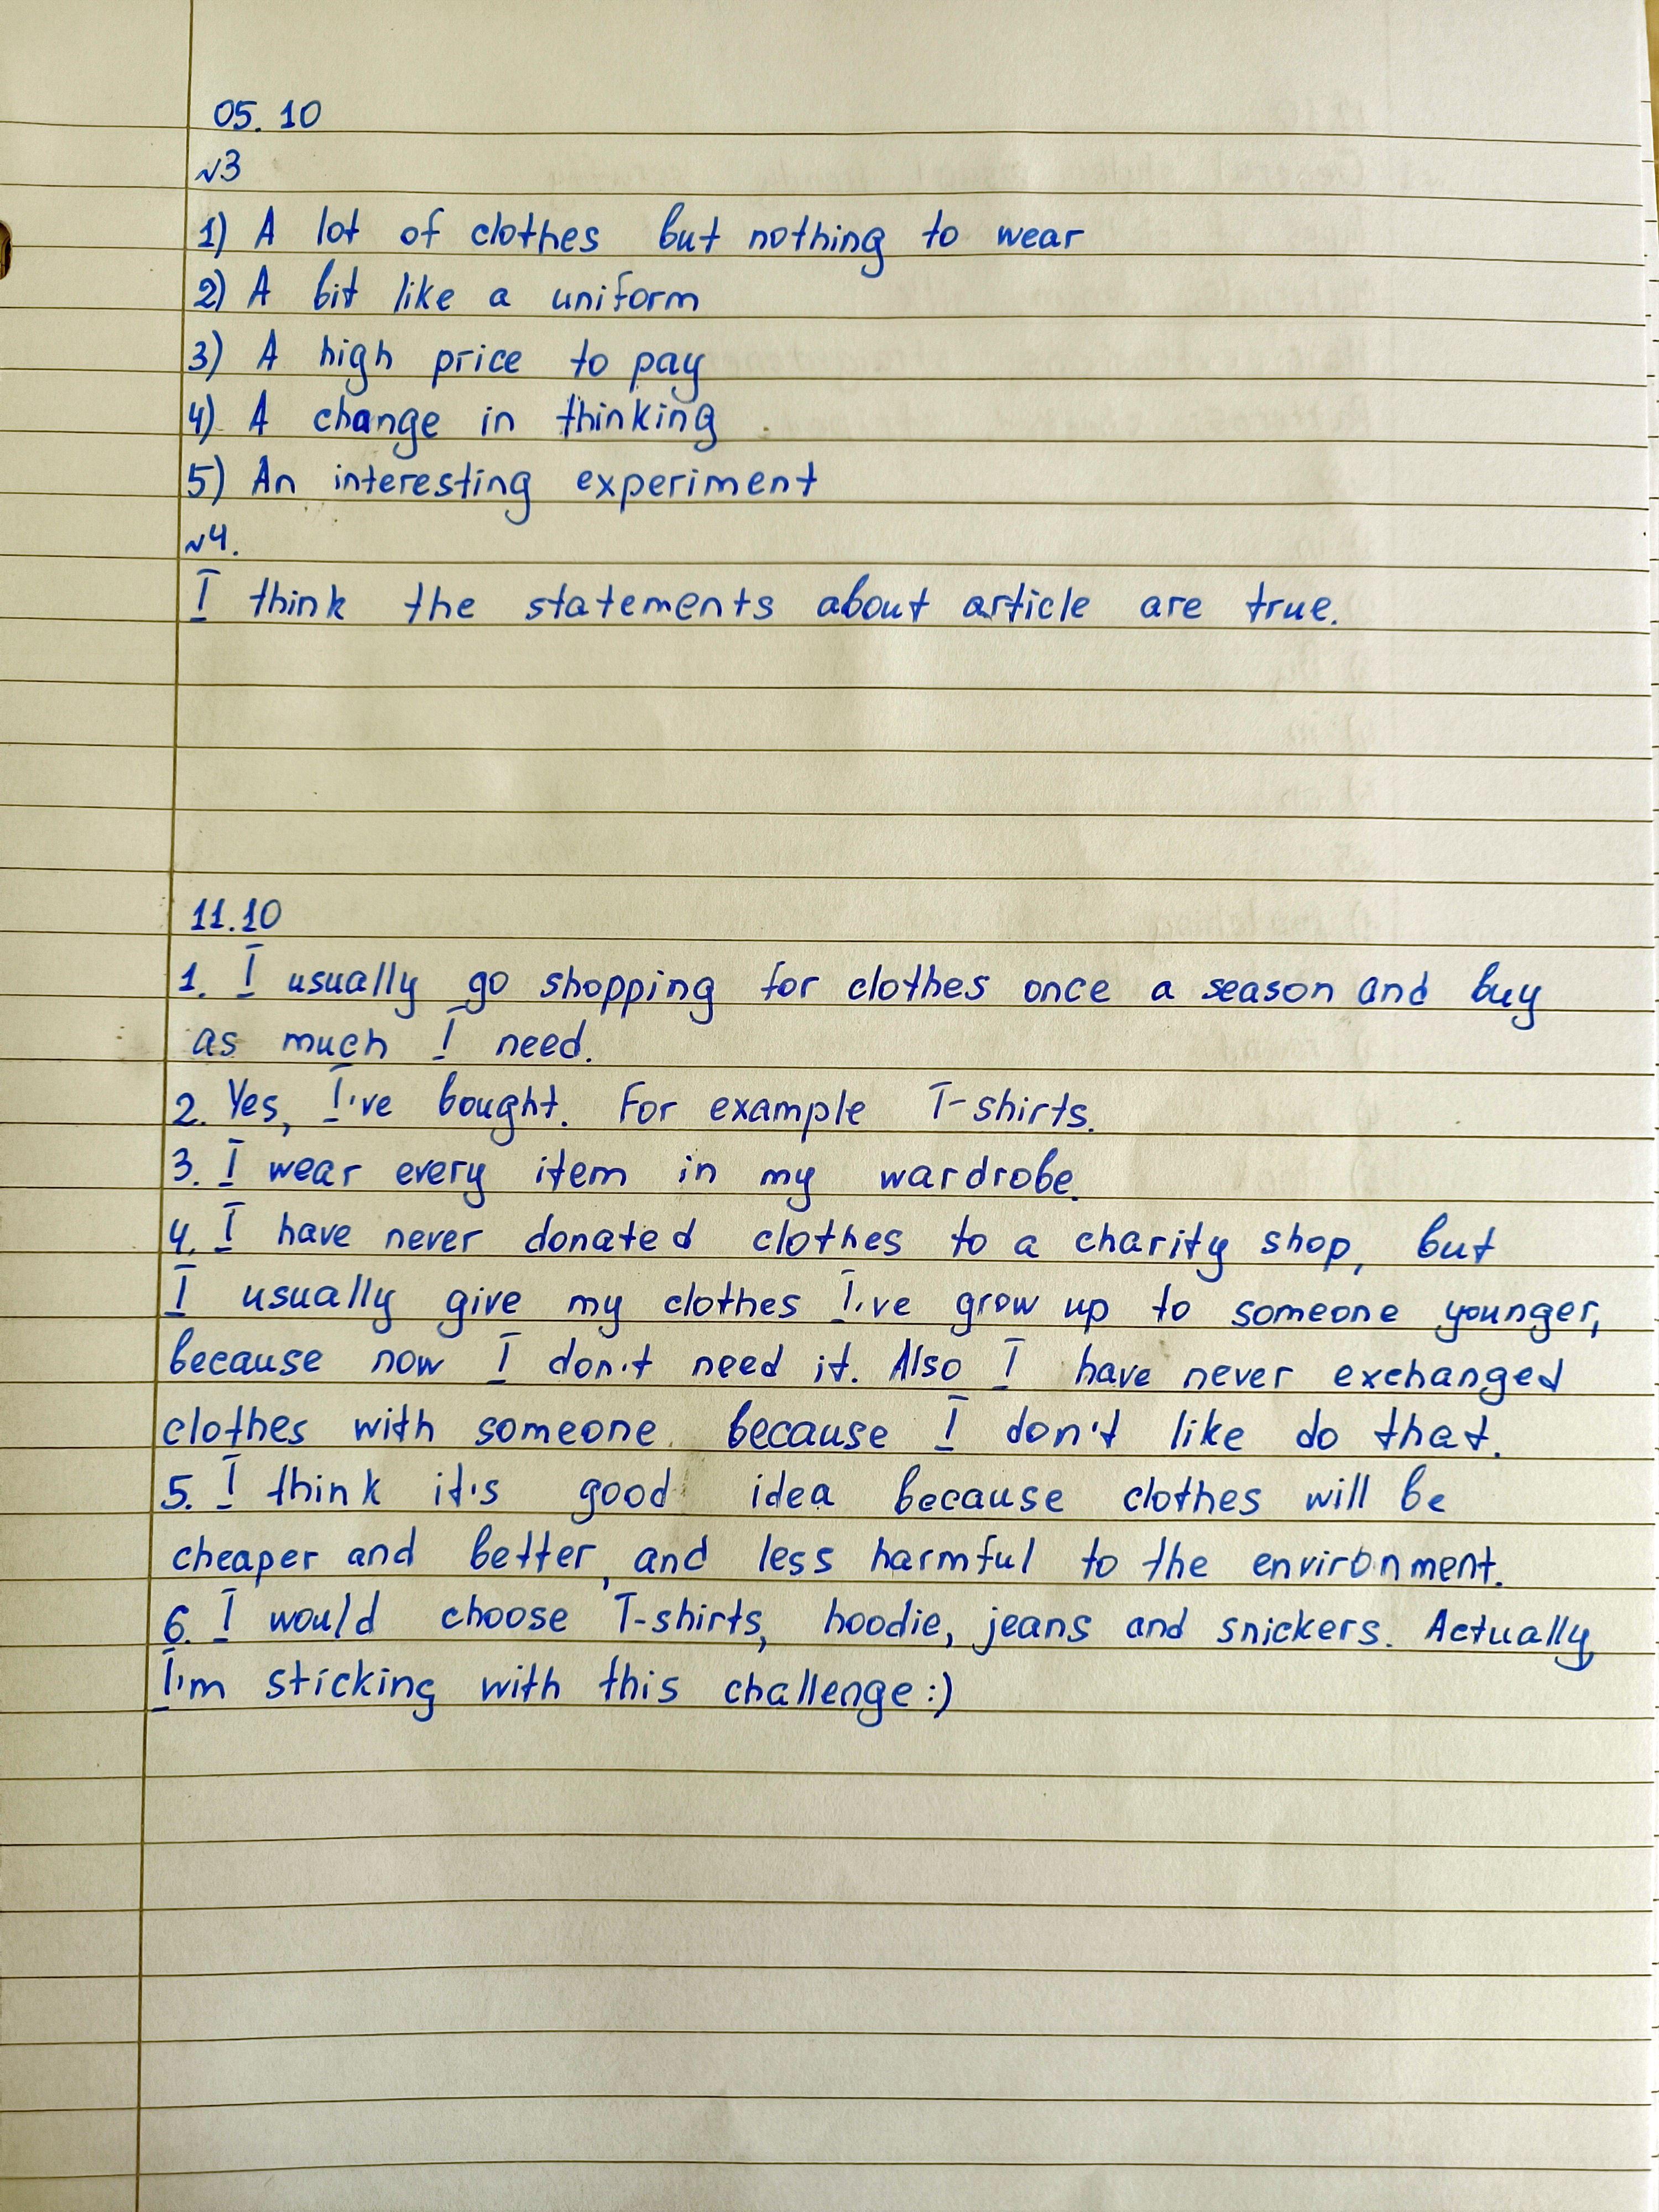 05.10
№3
1) A lot of clothes but nothing to wear
2) A bit like a uniform
3) A high price to pay
4) A change in thinking
5) An interesting experiment
№4.
I think the statements about article are true.
11.10
1. I usually go shopping for clothes once a season and buy
as much I need.
2. Yes, I've bought. For example T-shirts.
3. I wear every item in my wardrobe.
4. I have never donated clothes to a charity shop, but
I usually give my clothes I've grow up to someone younger,
because now I don't need it. Also I have never exchanged
clothes with someone because I don't like do that.
5. I think it's good idea because clothes will be
cheaper and better, and less harmful to the environment.
6. I would choose T-shirts, hoodie, jeans and snickers. Actually
I'm sticking with this challenge:)